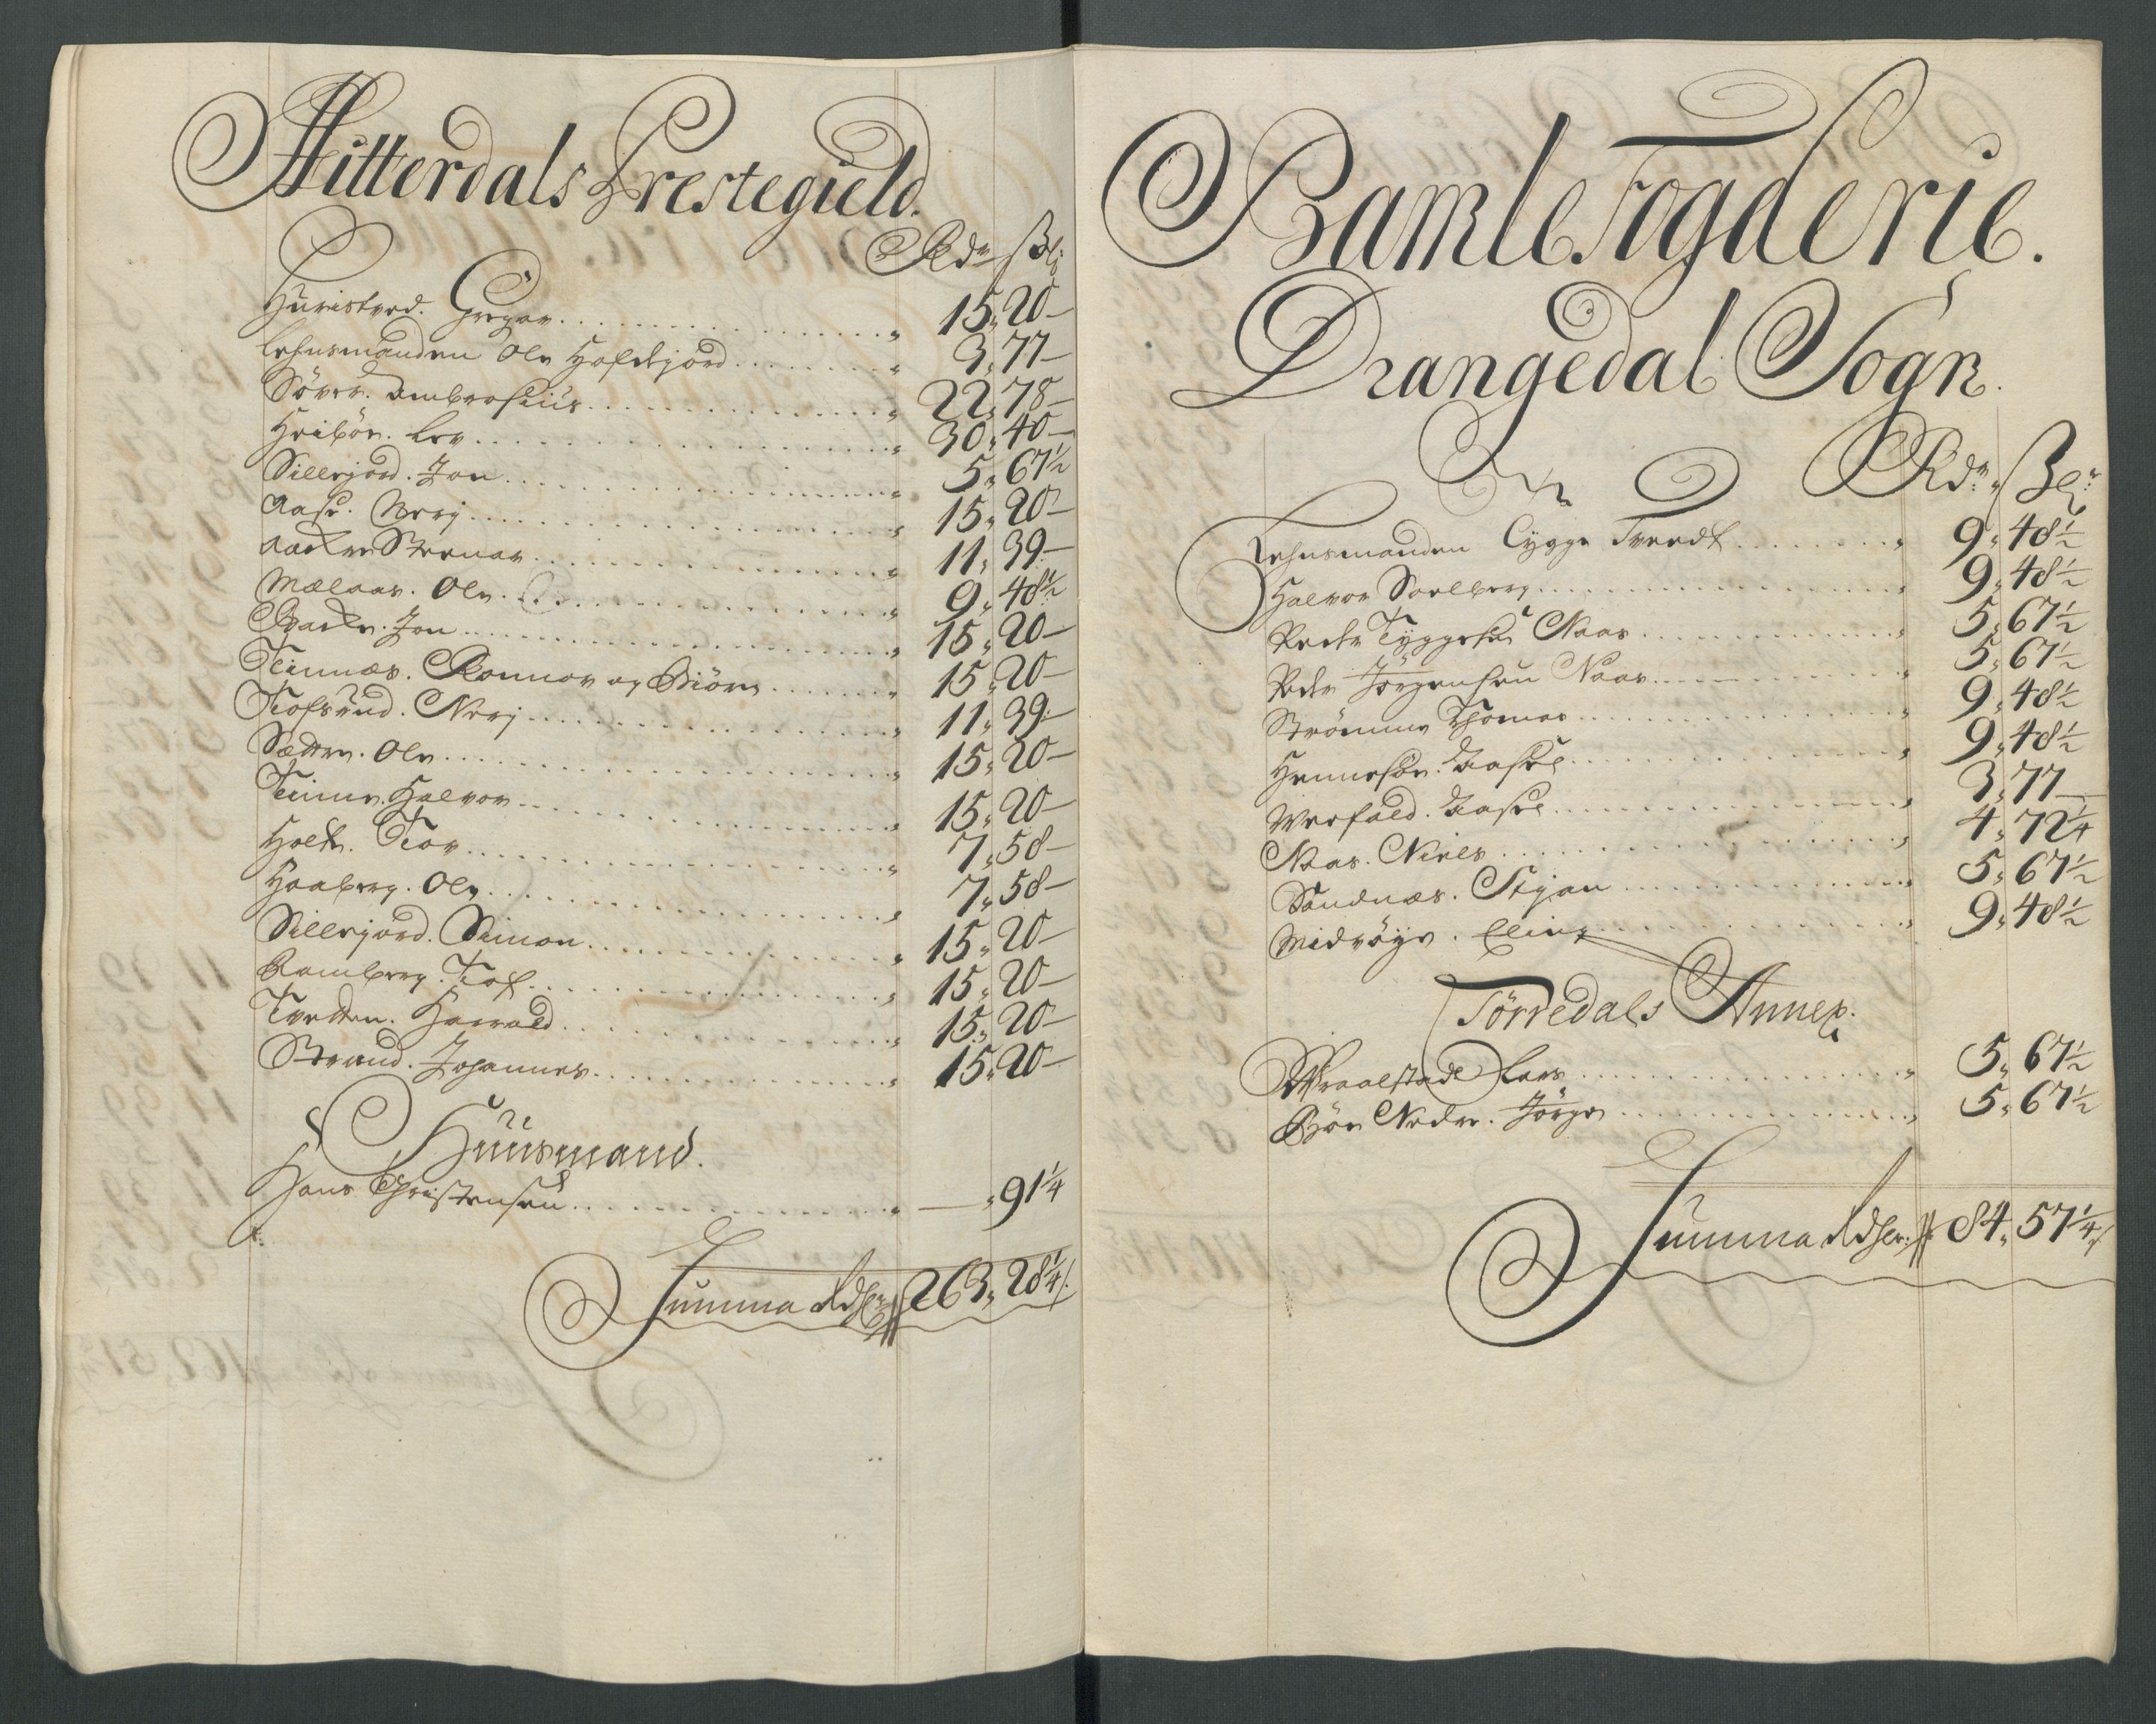 Hitterdals Prestegield.
Rdr ßl:
Huuistved. Gregar. 15 „ 20 –
Lehnsmanden Ole Hafskjord 3 „ 77 –
Söver. Ambrosius 22 „ 78 –
Hribör. Lev 30 „ 40 –
Sillejord. Jon 5 „ 67½
Aase. Nerj 15 „ 20 –
Aacker Steenar 11 „ 39 –
Mælaas. Ole 9 „ 48½
Backe. Jon 15 „ 20 –
Tinnæs. Gonnov og Biörn 15 „ 20 –
Tiofsrud. Nerj 11 „ 39 –
Sætter. Ole 15 „ 20 –
Tinne. Halvor 15 „ 20 –
Holte. Tiov 7 „ 58 –
Haaberg. Ole 7 „ 58 –
Sillejord. Simon 15 „ 20 –
Ramberg. Tiof 15 „ 20 –
Tvetten. Harrald 15 „ 20 –
Strand. Johannes 15 „ 20 –
Huusmand.
Hans Christensen – „ 91¼
Summa Rdlr 263 „ 28¼
Bamble Fogderie.
Drangedal Sogn.
Rdr „ ßl:
Lehnsmanden Tygge Tveedt 9 „ 48½
Halvor Soelberg 9 „ 48½
Peder Tyggesen Naas 5 „ 67½
Peder Jörgensen Naas 5 „ 67½
Strömme Thomas 9 „ 48½
Hennesör. Aasel 9 „ 48½
Werfald. Aasel 3 „ 77 –
Naas. Niels 4 „ 72¼
Sandnæs. Styan 5 „ 67½
Midröye. Elling 9 „ 48½
Törredals Annex.
Wraalstade Lars 5 „ 67½
Böe Nedre. Jörgen 5 „ 67½
Summa Rdlr 84 „ 57¼